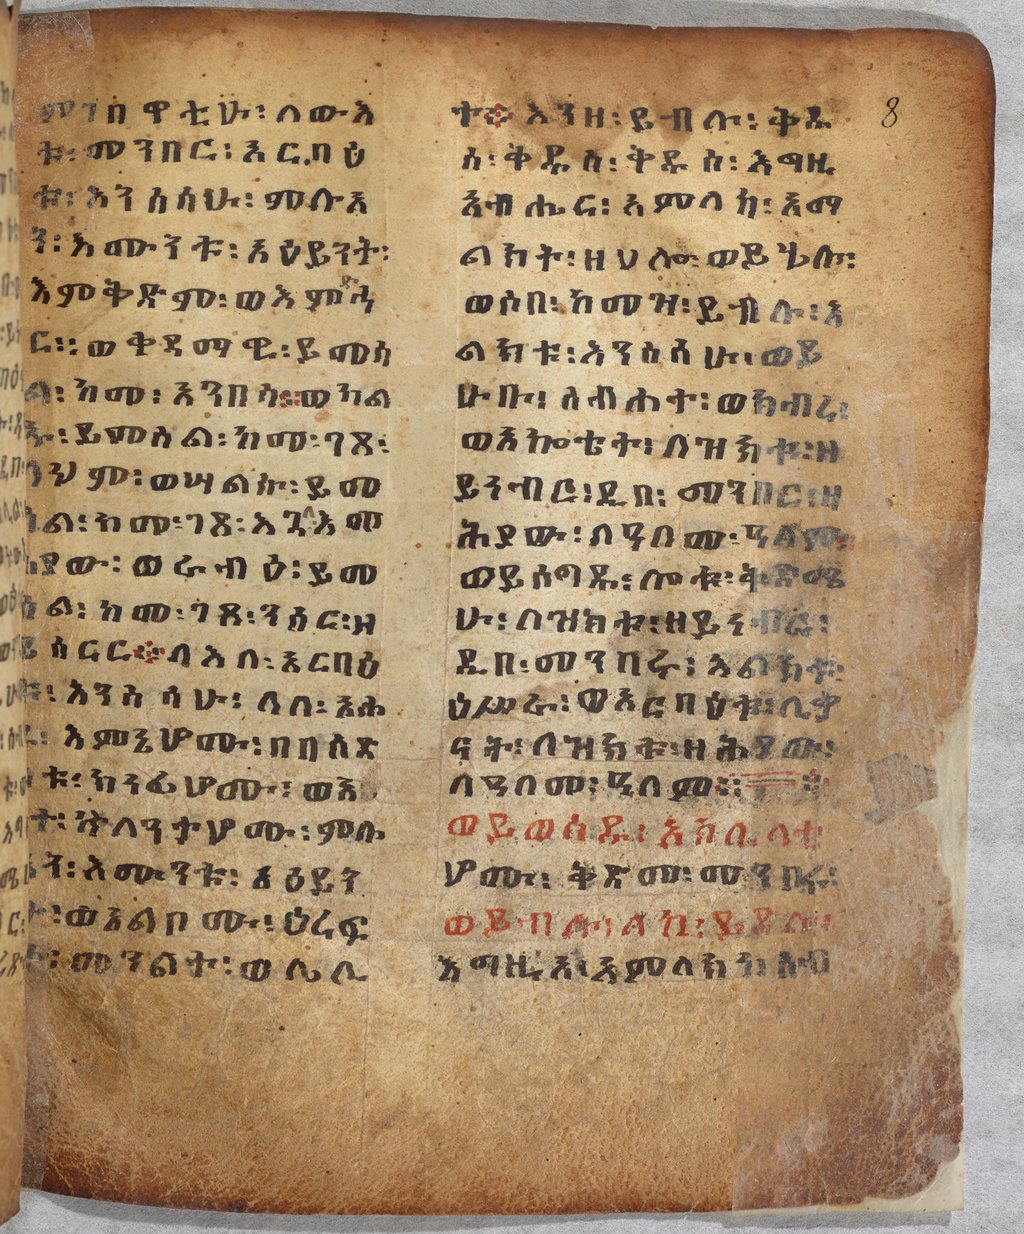 መንበ ዋቲሁ፡ ለውእ
ቱ፡ መንበር፡ አርባዕ
ቱ፡ እንስሳሁ፡ ምሉአ
ን፡ እሙንቱ፡ አዕይንት፡
እምቅድም፡ ወእምዳ
ር፡፡ ወቀዳማዊ፡ ይመስ
ል፡ ከመ፡ አንበሳ፡፡ ወካል
ኡ፡ ይመስል፡ ከመ፡ ገጸ፡
ላህም፡ ወሣልሱ፡ ይመ
ስል፡ ከመ፡ ገጸ፡ እጓለ እመ
ሕያው፡ ወራብዕ፡ ይመ
ስል፡ ከመ፡ ገጸ፡ ንስር፡ ዘ
ይሰርር፡፡ ለእለ፡ አርባዕ
ቱ፡ እንስሳሁ፡ ለለ፡ አሐ
ዱ፡ እምኔሆሙ፡ በበስድ
ስቱ፡ ክንፊሆሙ፡ ወእ
ንተ፡ ኵለንታሆሙ፡ ምሉ
ኣት፡ እሙንቱ፡ አዕይን
ተ፡ ወአልቦሙ፡ ዕረፍ
ት፡ መዓልተ፡ ወሌሊ
ተ፡፡ እንዘ፡ ይብሉ፡ ቅዱ
ስ፡ ቅዱስ፡ ቅዱስ፡ እግዚ
አብሔር፡ አምላክ፡ አማ
ልክት፡ ዘሀሎ፡ ወይሄሉ፡
ወሶበ፡ ከመዝ፡ ይብሉ፡ እ
ልክቱ፡ እንስሳሁ፡ ወይ
ሁቡ፡ ለስብሐተ፡ ወክብረ፡
ወአኰቴተ፡ ለዝክቱ፡ ዘ
ይነብር፡ ዲበ፡ መንበር፡ ዘ
ሕያው፡ ለዓለመ፡ ዓለም፡
ወይሰግዱ፡ ሎቱ፡ ቅድሜ
ሁ፡ ለዝክቱ፡ ዘይነብር፡
ዲበ፡ መንበሩ፡ እልክቱ፡
ዕሥራ፡ ወአርባዕቱ፡ ሊቃ
ናት፡ ለዝክቱ፡ ዘሕያው፡
ለዓለመ፡ ዓለም፡፡
ወይወስዱ፡ አክሊላቲ
ሆሙ፡ ቅድመ፡ መንበሩ፡
ወይብሉ፡ ለከ፡ ይደሉ፡
እግዚኦ፡ አምላክነ፡ ስብ
8